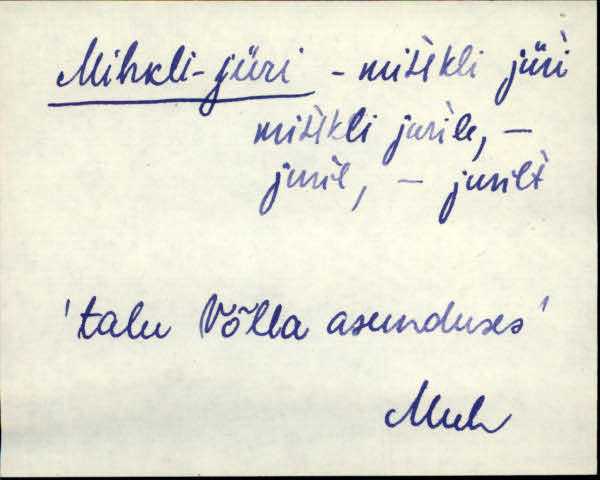 Mihkli-jüri - mihkli jüri
mihkli jurile, -
juril, - jurilt
'talu Võlla asunduses'
Muh